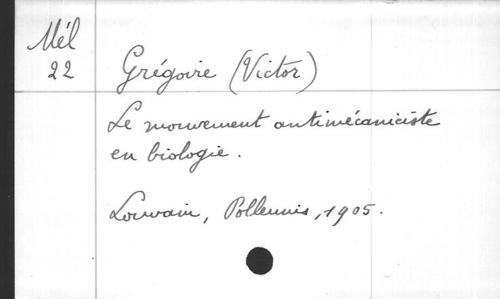 Mél
22
Grégoire (Victor)
Le mouvement antimécaniciste
en biologie.
Louvain, Polleunis, 1905.